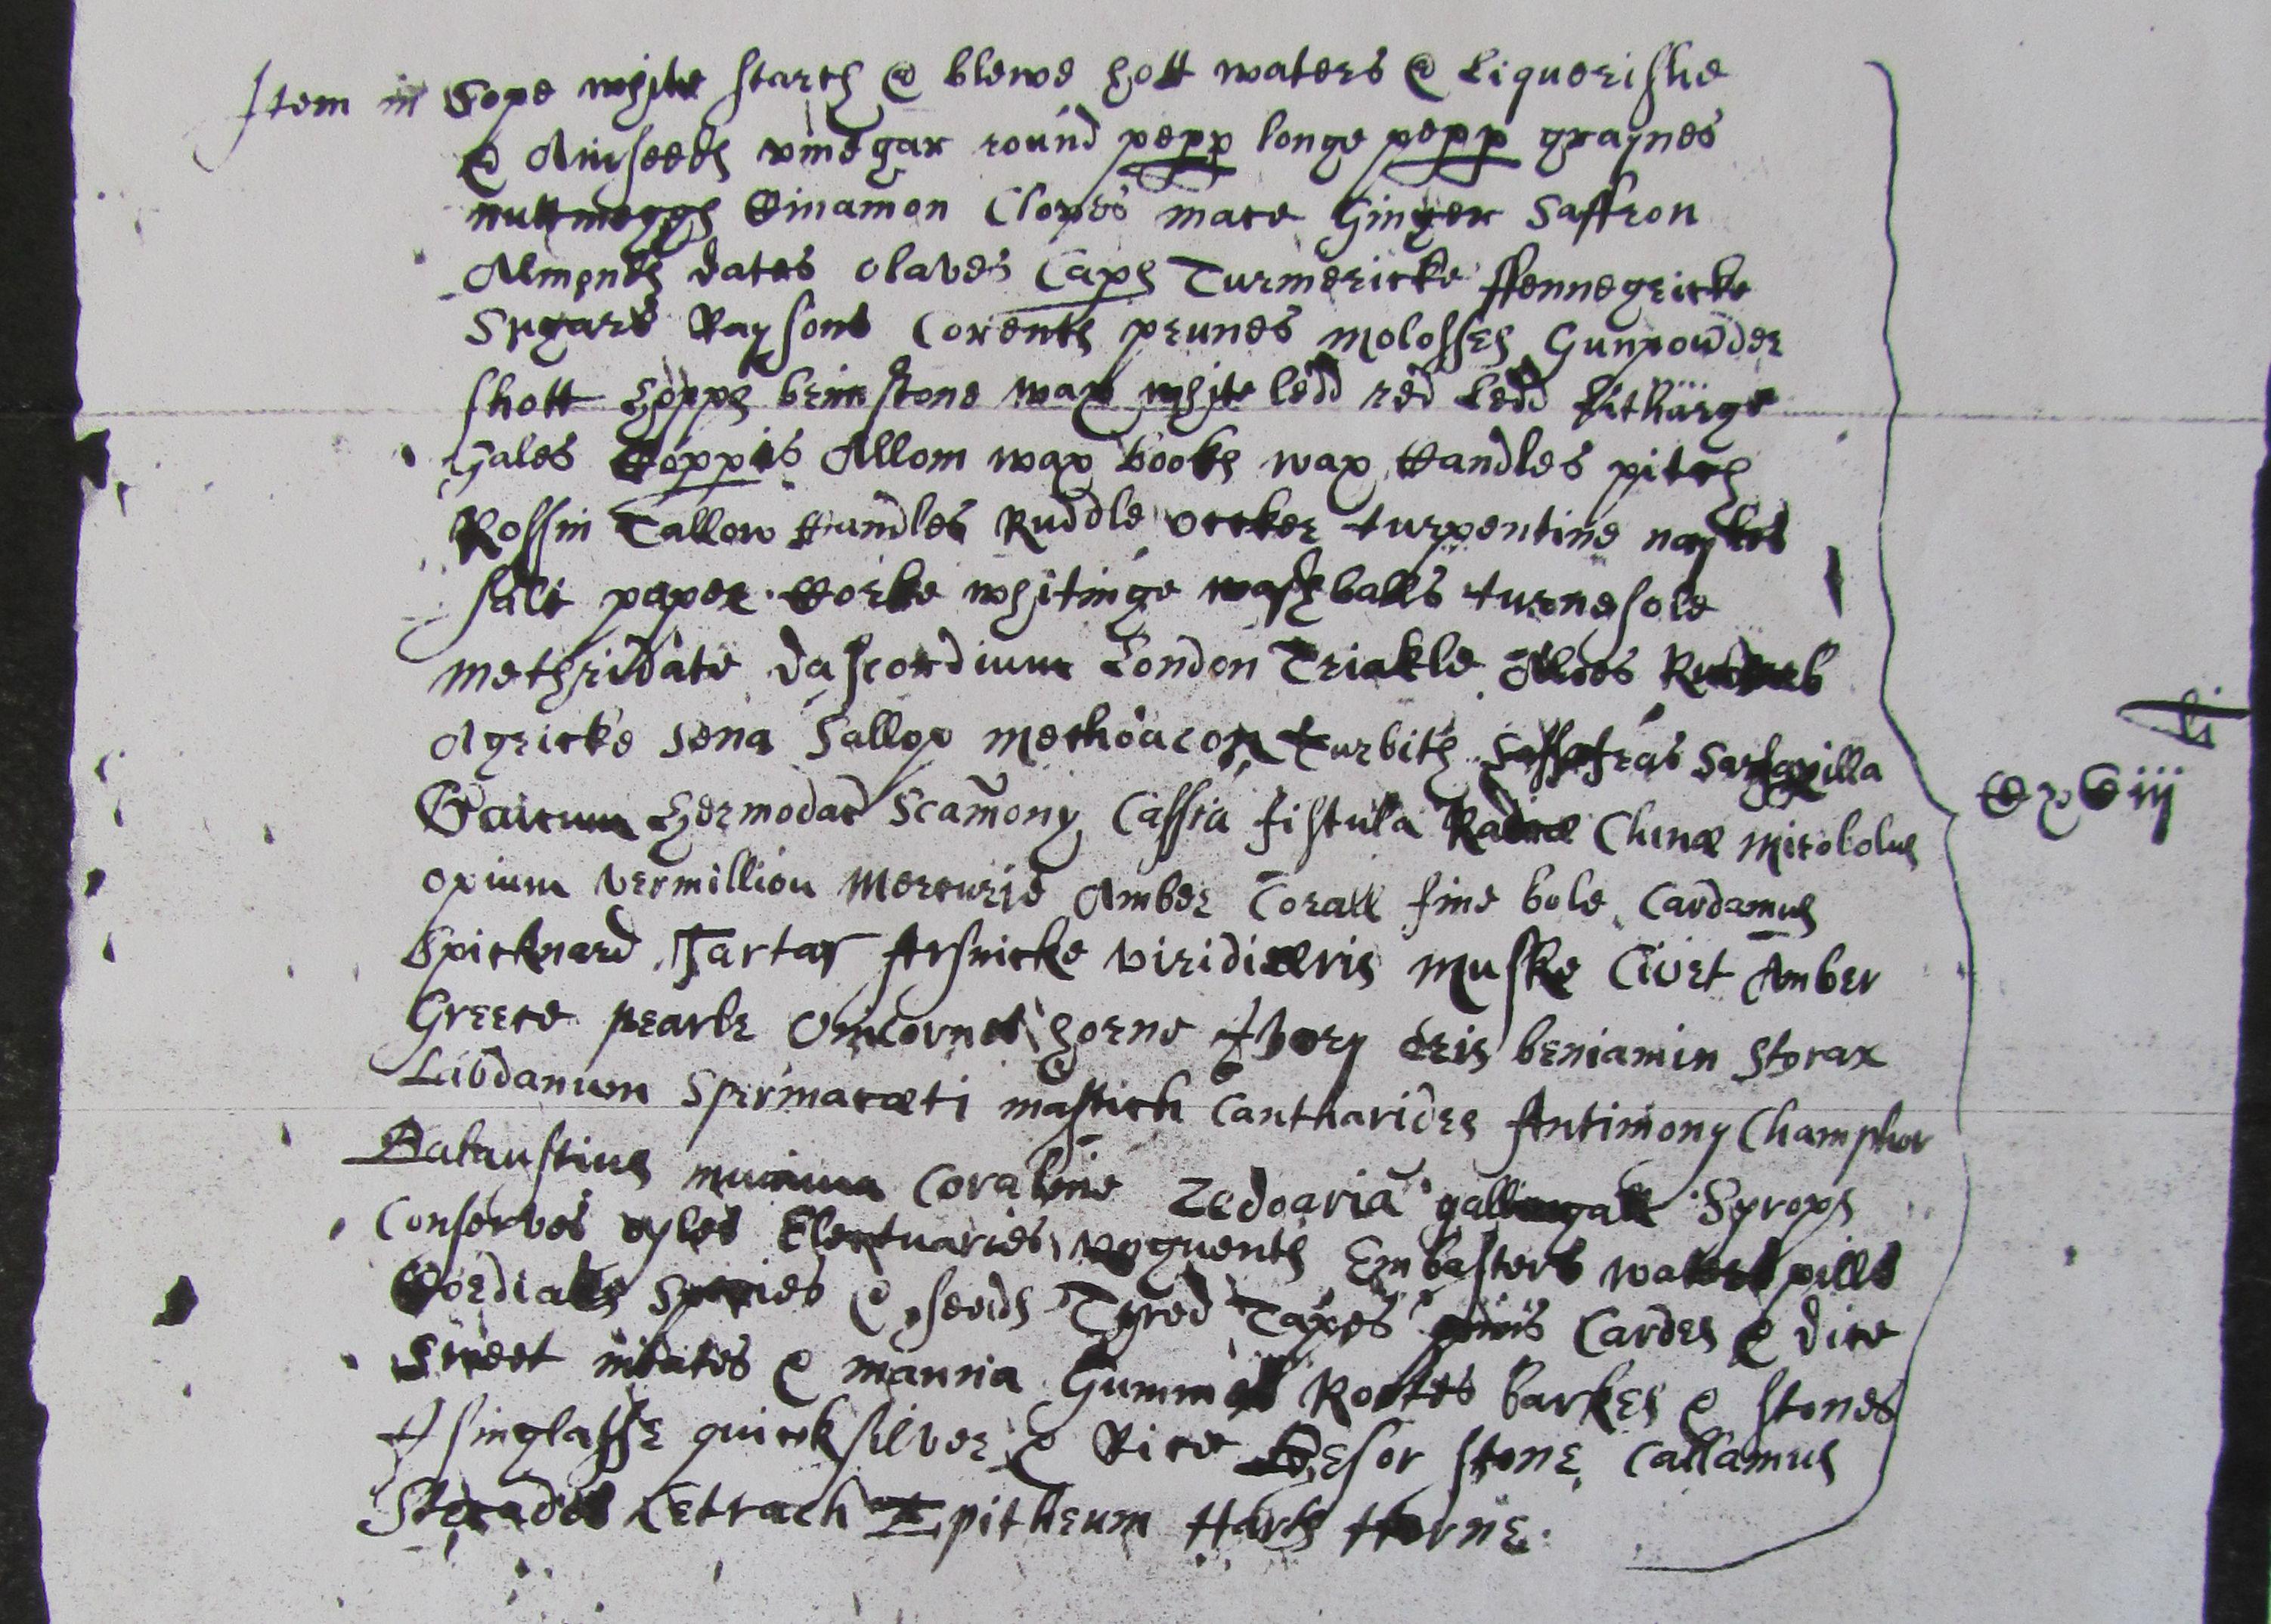 Item in Sope white starch & blewe hott waters & Liquerishe
& Aniseeds vinegar round pepp longe pepp graynes
nuttmeggs Cinamon Cloves mace Ginger Saffron
Almonds dates olaves Caps Turmericke ffennegricke
Sugars Raysons Corents prunes molosses Gunpowder
shott hopps brimstone wax white ledd red Ledd Litharge
Gales Coppis Allom wax books wax Candles pitch
Rossin Tallow Candles Ruddle ocker turpentine nayles
salt paper Corke whitinge washballs turnesole
methridate dascordium London Triakle Aloes Rubarb
Agricke Sena Jallop mechoacon turbith Sassafras Sarsapilla
Gaicum hermodac Scamony Cassia fistula Radix Chinæ Mirobolus
opium vermillion Mercurie Amber Corall fine bole Cardamus
Spicknard Tartar Arsnicke viridiæris Muske Civet Amber
Greece pearle Unicornes horne Ivory Iris beniamin Storax
Labdanum Spermacæti mastich Cantharides Antimony Champhor
Balaustius mumia Coraline Zedoaria gallengall Syrops
Conserves oyles Electuaries unguents Emblasters waters pills
Cordialls Species & seeds Tyred Tapes pinns Cardes & dice
Sweet meates & manna Gummes Rootes barkes & stones
Isinglasse quicksilver & Rice Besor stone Callamus
Stecados Cetrach Epitheum Harts Horne
li
cxviij